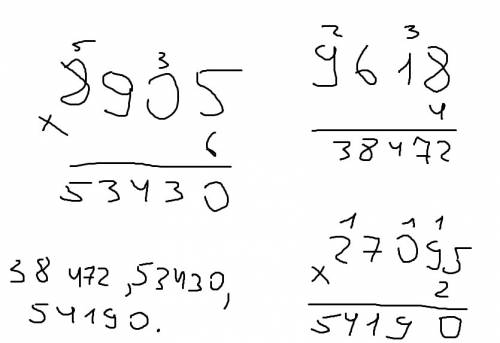 5 3
8905
× 6
53430
2 3
9618
4
38472
1 1 1
27095
× 2
54190
38472, 53430,
54190.